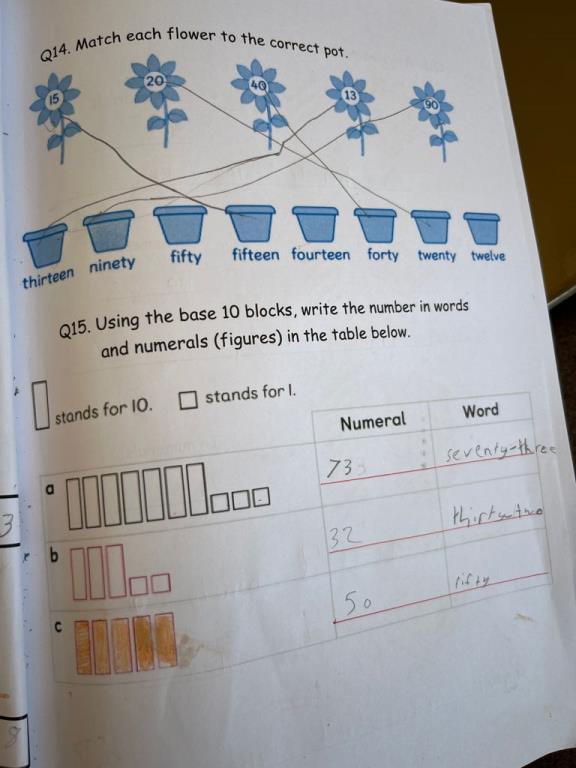 Q14. Match each flower to the correct pot.
15 20 40 13 90
thirteen ninety fifty fifteen fourteen forty twenty twelve
Q15. Using the base 10 blocks, write the number in words
and numerals (figures) in the table below.
stands for 10. stands for 1.
Numeral Word
a 73 seventy-three
b 32 thirty-two
c 50 fifty
3
8